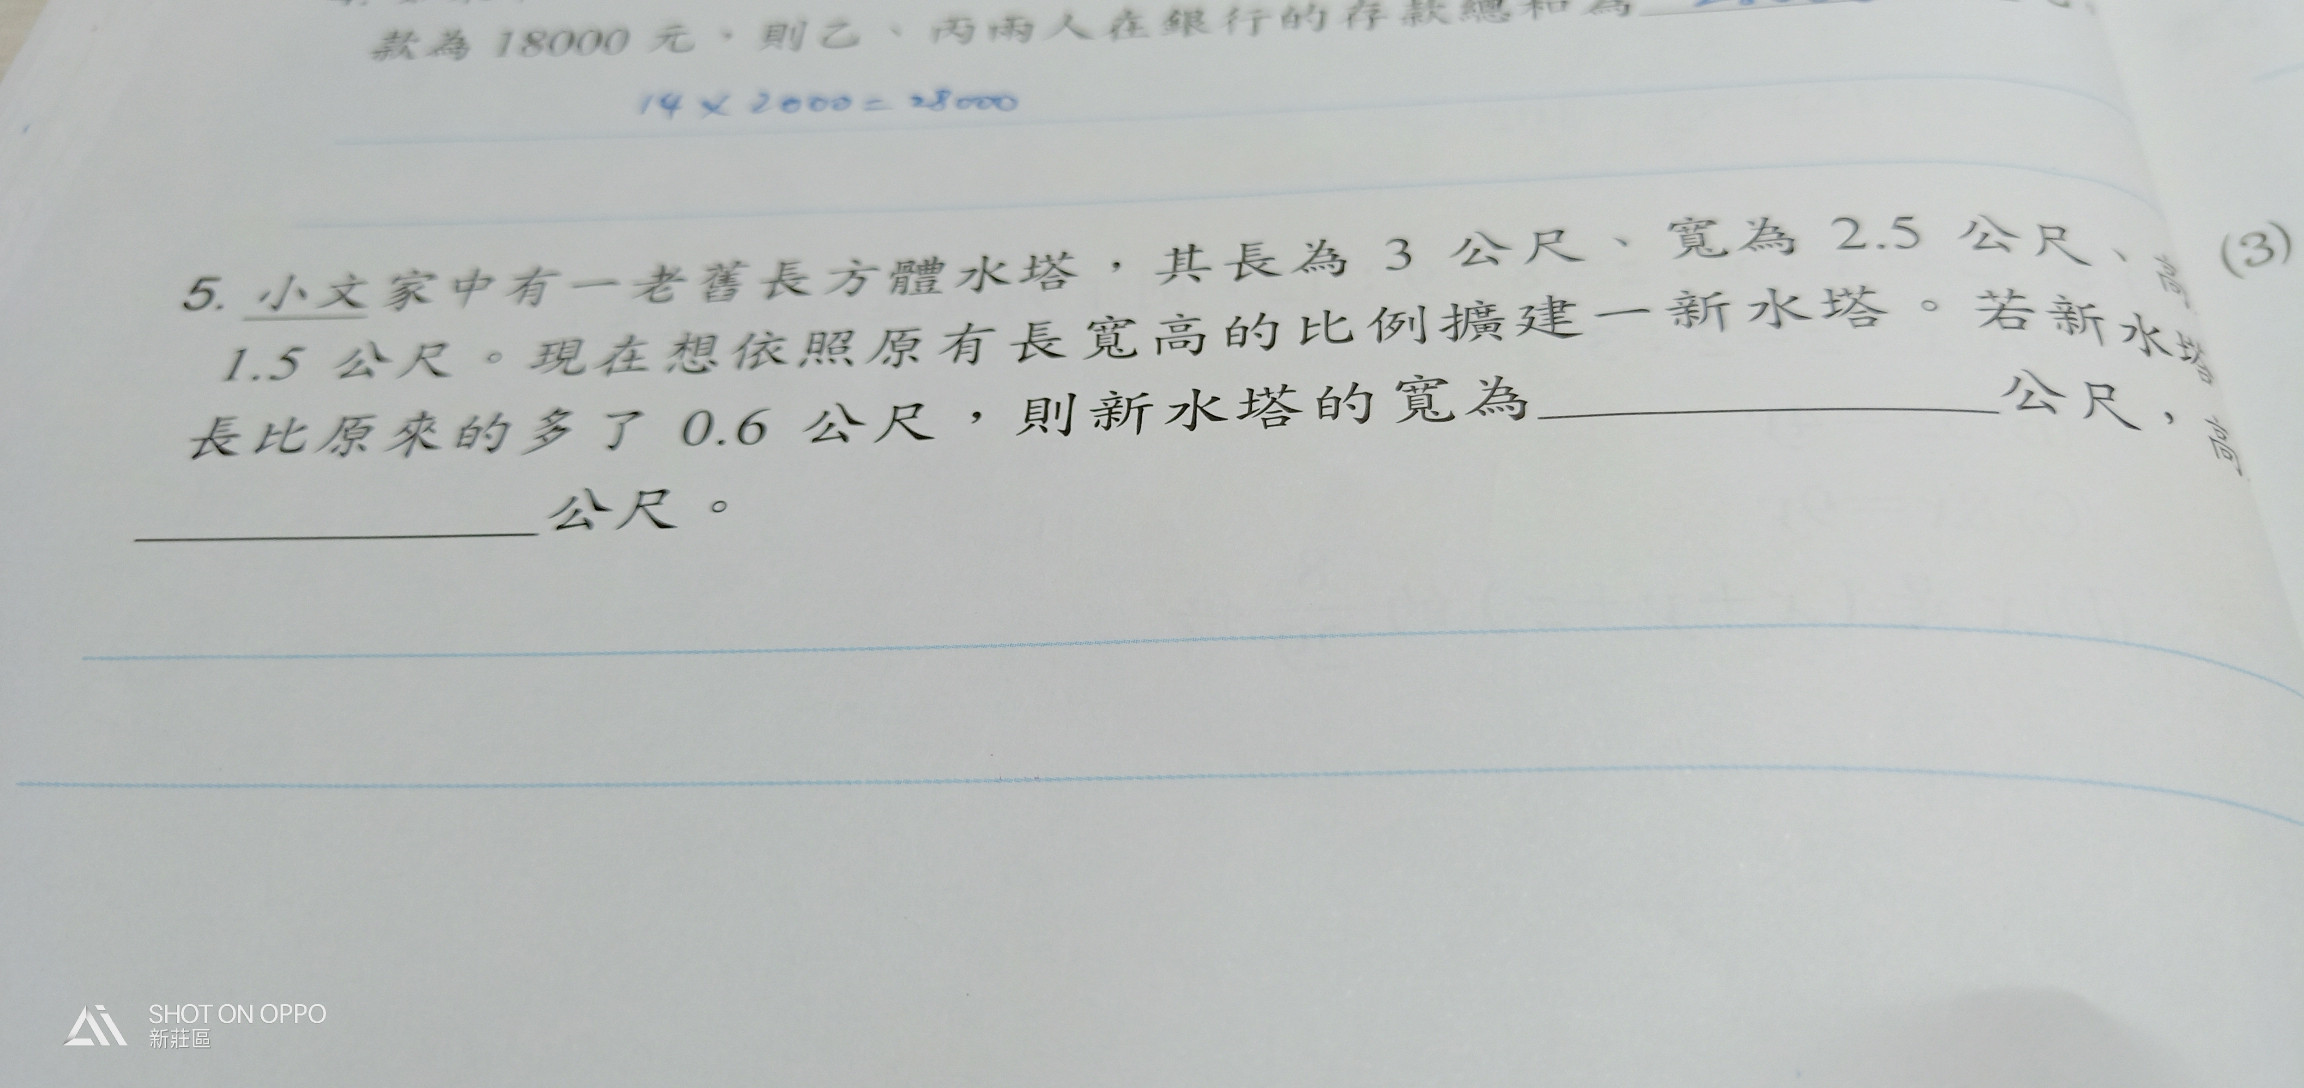 款為 18000 元,則乙、丙兩人在銀行的存款總和為
14 × 2000 = 28000
5. 小文家中有一老舊長方體水塔,其長為 3 公尺、寬為 2.5 公尺、高
(3)
1.5 公尺。現在想依照原有長寬高的比例擴建一新水塔。若新水塔
長比原來的多了 0.6 公尺,則新水塔的寬為 公尺,高
公尺。
SHOT ON OPPO
新莊區